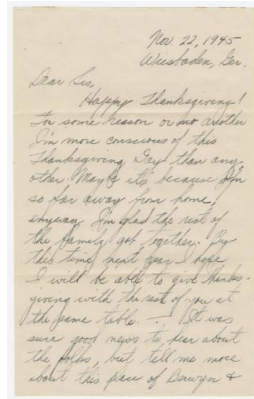 Nov. 22, 1945
Wiesbaden, Ger.
Dear Sis,
Happy Thanksgiving!
For some reason or no another
I'm more conscious of this
Thanksgiving Day than any
other. Maybe its, because I'm
so far away from home,
anyway I'm glad the rest of
the family got together. By
this time next year I hope
I will be able to give thanks-
giving with the rest of you at
the same table. — It was
sure good news to hear about
the folks, but tell me more
about this place of Berwyn &